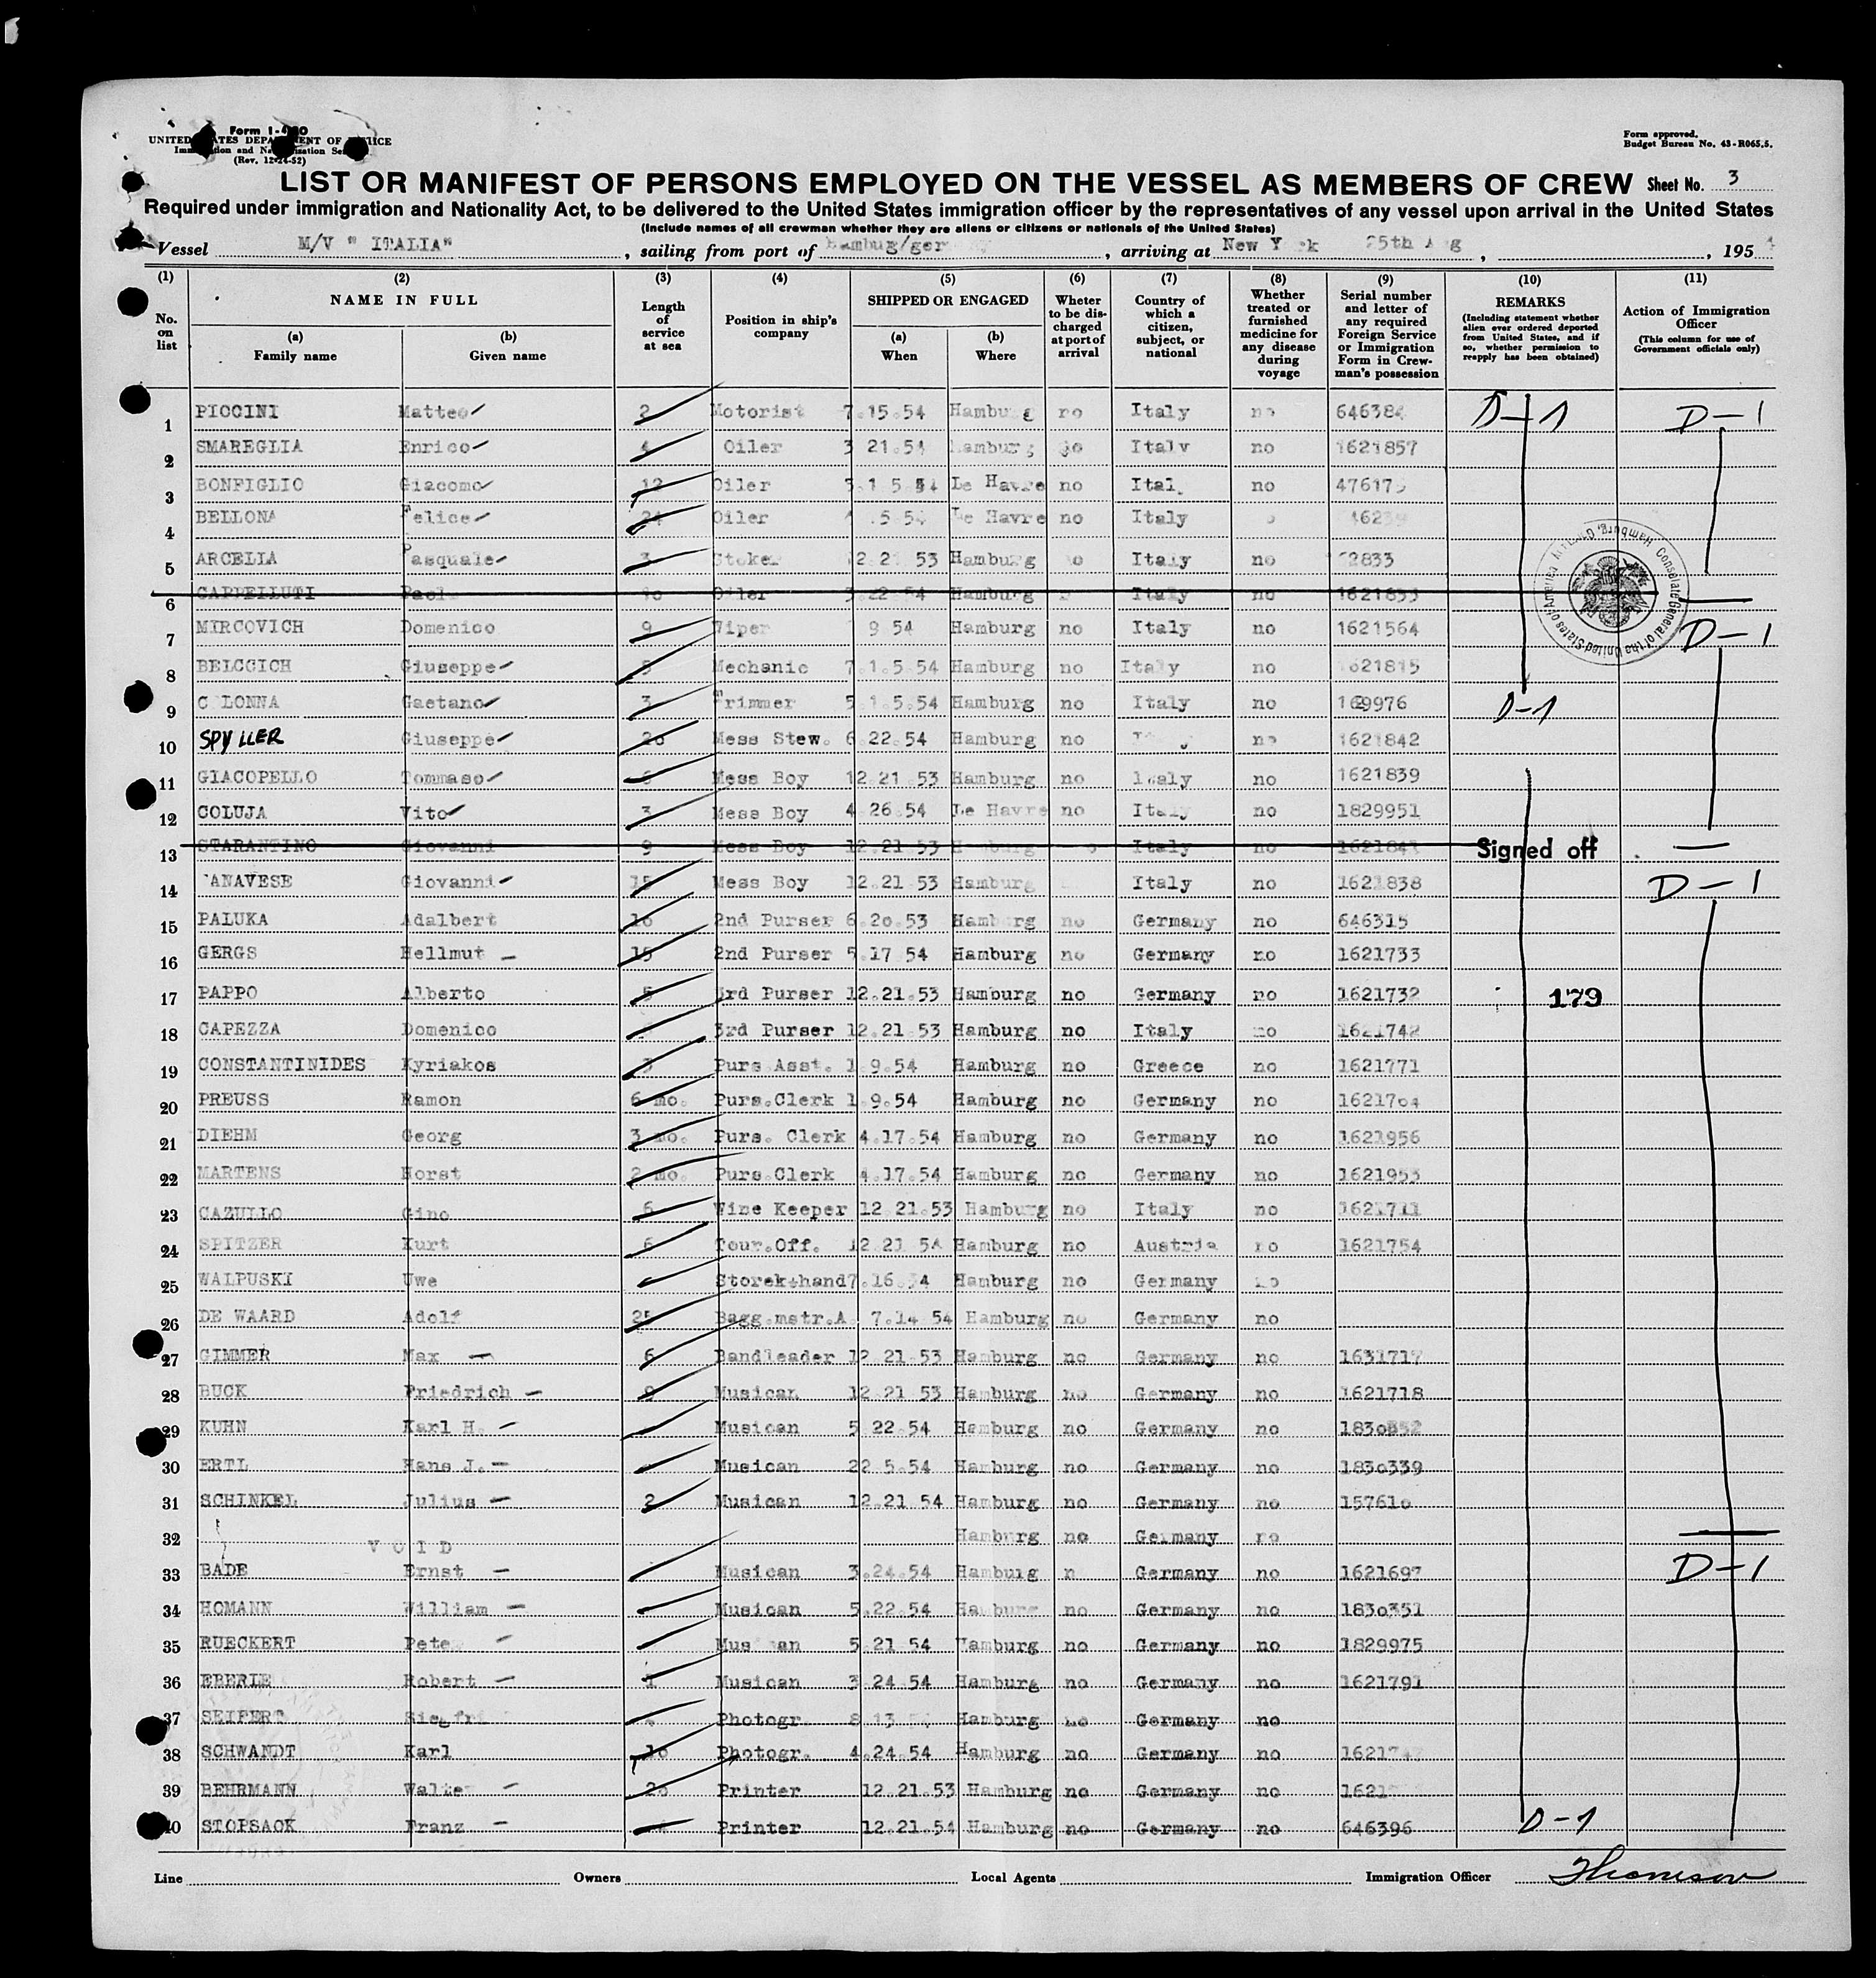 Form I-4 0
UNITED STATES DEPARTMENT OF JUSTICE
Immigration and Naturalization Service
(Rev. 12-24-52)
Form approved.
Budget Bureau No. 43-R065.5.
LIST OR MANIFEST OF PERSONS EMPLOYED ON THE VESSEL AS MEMBERS OF CREW Sheet No. 3
Required under immigration and Nationality Act, to be delivered to the United States immigration officer by the representatives of any vessel upon arrival in the United States
(Include names of all crewman whether they are aliens or citizens or nationals of the United States)
Vessel M/V "ITALIA", sailing from port of Hambug/ger, arriving at New York 25th Aug, 1954
(1) (2) (3) (4) (5) (6) (7) (8) (9) (10) (11)
No. on list
NAME IN FULL
(a) Family name
(b) Given name
Length of service at sea
Position in ship's company
SHIPPED OR ENGAGED
(a) When
(b) Where
Wheter to be discharged at port of arrival
Country of which a citizen, subject, or national
Whether treated or furnished medicine for any disease during voyage
Serial number and letter of any required Foreign Service or Immigration Form in Crewman's possession
REMARKS
(Including statement whether alien ever ordered deported from United States, and if so, whether permission to reapply has been obtained)
Action of Immigration Officer
(This column for use of Government officials only)
1 PICCINI Matteo 2 Motorist 7.15.54 Hamburg no Italy no 64638 D-1 D-1
2 SMAREGLIA Enrico 4 Oiler 3 21.54 Hamburg no Italy no 1621857
3 BONFIGLIO Giacomo 12 Oiler Le Havre no Ital no 47617
4 BELLONA Felice 24 Oiler 5 54 Le Havre no Italy
5 ARCELLA Pasquale 3 Stoker 12.2 53 Hamburg no Italy no 2833
6 CAPPELLUTI Oiler 3.22 54 Hamburg Italy no 1621833
7 MIRCOVICH Domenico 9 Wiper 9 54 Hamburg no Italy no 1621564 D-1
8 BELCGICH Giuseppe Mechanic 7.1.5.54 Hamburg no Italy no 1621815
9 C LONNA Gaetano 3 Trimmer 5.1.5.54 Hamburg no Italy no 169976 D-1
10 SPYLLER Giuseppe 20 Mess Stew. 6.22.54 Hamburg no no 1621842
11 GIACOPELLO Tommaso Mess Boy 12.21.53 Hamburg no Italy no 1621839
12 COLUJA Vito 3 Mess Boy 4 26.54 Le Havre no Italy no 1829951
13 STARANTINO Giovanni 9 Mess Boy 12.21 53 Italy no 162184 Signed off
14 ANAVESE Giovanni 15 Mess Boy 12.21.53 Hamburg Italy no 1621838 D-1
15 PALUKA Adalbert 16 2nd Purser 6.20.53 Hamburg no Germany no 646315
16 GERGS Hellmut 15 2nd Purser 5.17 54 Hamburg no Germany no 1621733
17 PAPPO Alberto 5 3rd Purser 12.21.53 Hamburg no Germany no 1621732 179
18 CAPEZZA Domenico 3rd Purser 12.21 53 Hamburg no Italy no 1621742
19 CONSTANTINIDES Kyriakos 3 Purs Asst. 1.9.54 Hamburg no Greece no 1621771
20 PREUSS Ramon 6 mo. Purs.Clerk 1.9.54 Hamburg no Germany no 1621764
21 DIEHM Georg 3 mo. Purs. Clerk 4.17.54 Hamburg no Germany no 1621956
22 MARTENS Horst 2 mo. Purs.Clerk 4.17.54 Hamburg no Germany no 1621953
23 CAZULLO Gino 6 Wine Keeper 12.21.53 Hamburg no Italy no 1621711
24 SPITZER Kurt 6 Tour.Off. 12 21 54 Hamburg no Austria no 1621754
25 WALPUSKI Uwe Storek.hand 7.16.54 Hamburg no Germany no
26 DE WAARD Adolf 25 Bagg.mstr.A. 7.14 54 Hamburg no Germany no
27 GIMMER Max 6 Bandleader 12 21.53 Hamburg no Germany no 1631717
28 BUCK Friedrich 9 Musican 12 21 53 Hamburg no Germany no 1621718
29 KUHN Karl H. Musican 5 22.54 Hamburg no Germany no
30 ERTL Hans J. Musican 22 5.54 Hamburg no Germany no 1830339
31 SCHINKEL Julius 2 Musican 12.21 54 Hamburg no Germany no 157610
32 VOID Hamburg no Germany no
33 BADE Ernst Musican 3.24.54 Hamburg n Germany no 1621697 D-1
34 HOMANN William Musican 5.22.54 Hamburg no Germany no 1830351
35 RUECKERT Pete Mus an 5.21 54 Hamburg no Germany no 1829975
36 EBERLE Robert 1 Musican 3 24 54 Hamburg no Germany no 1621791
37 SEIFERT Siegfri Photogr 8 13 Hamburg no Germany no
38 SCHWANDT Karl 10 Photogr. 4.24.54 Hamburg no Germany no 16217
39 BEHRMANN Walte 20 Printer 12.21.53 Hamburg no Germany no 1621
40 STOPSACK Franz Printer 12.21.54 Hamburg no Germany no 646396 D-1
Consulate General of the United States of America Hamburg, Germany
Line Owners Local Agents Immigration Officer Thomson